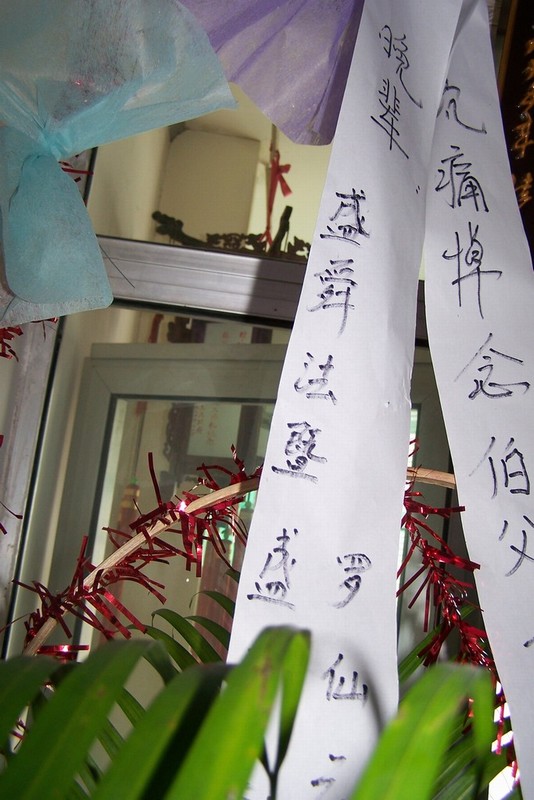 沉痛悼念伯父
晚辈
盛舜法暨
罗仙
盛